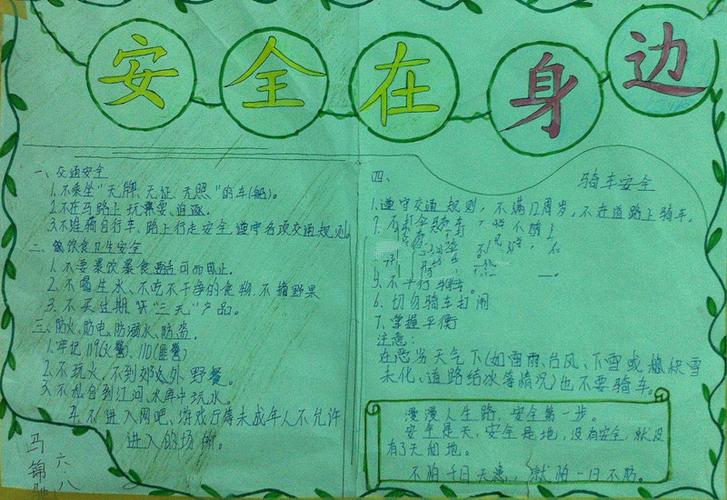 安全在身边
一、交通安全
1.不乘坐"无牌、无证、无照"的车(船)。
2.不在马路上玩耍、追逐。
3.不骑自行车,路上行走安全,遵守各项交通规则。
二、饮食卫生安全
1.不要暴饮暴食,适可而止。
2.不喝生水、不吃不干净的食物,不摘野果
3.不买过期"三无"产品。
三、防火、防电、防溺水、防盗。
1.牢记119(火警),110(匪警)
2.不玩火,不到郊外野餐。
3.不私自到江河、水库中玩水。
4.不进入网吧,游戏厅等未成年人不允许
进入的场所。
六.八
马锦
四、骑车安全
1.遵守交通规则,不满12周岁,不在道路上骑车。
5.不平行骑车。
6.切勿骑车打闹
7.掌握平衡
注意:
在恶劣天气下(如雷雨、台风、下雪或积雪
未化、道路结冰等情况)也不要骑车。
漫漫人生路,安全第一步。
安全是天,安全是地,没有安全,就没
有了天和地。
不怕千日,就怕一日不防。